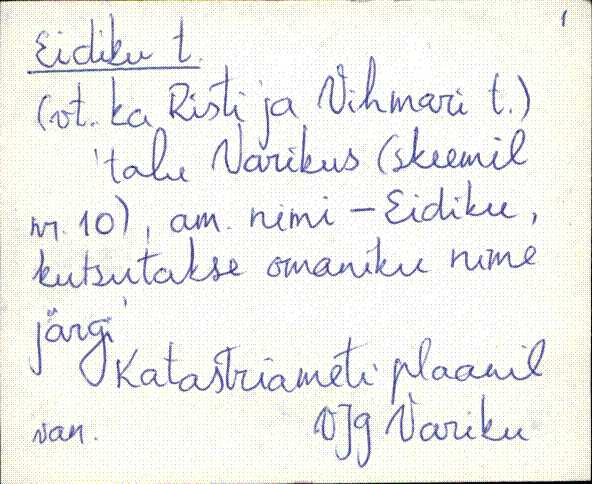 1
Eidiku t.
(vt. ka Risti ja Vihmari t.)
'talu Varikus (skeemil
nr. 10), am. nimi - Eidiku,
kutsutakse omaniku nime
järgi'
Katastriameti plaanil
van. VJg Variku